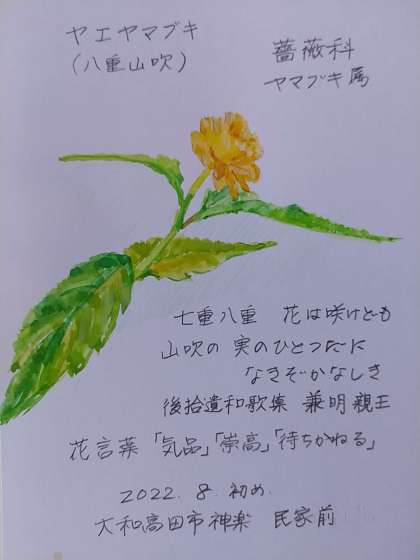 ヤエヤマブキ
(八重山吹)
薔薇科
ヤマブキ属
七重八重 花は咲けども
山吹の 実のひとつだに
なきぞかなしき
後拾遺和歌集 兼明親王
花言葉「気品」「崇高」「待ちかねる」
2022.8.初め.
大和高田市神楽 民家前